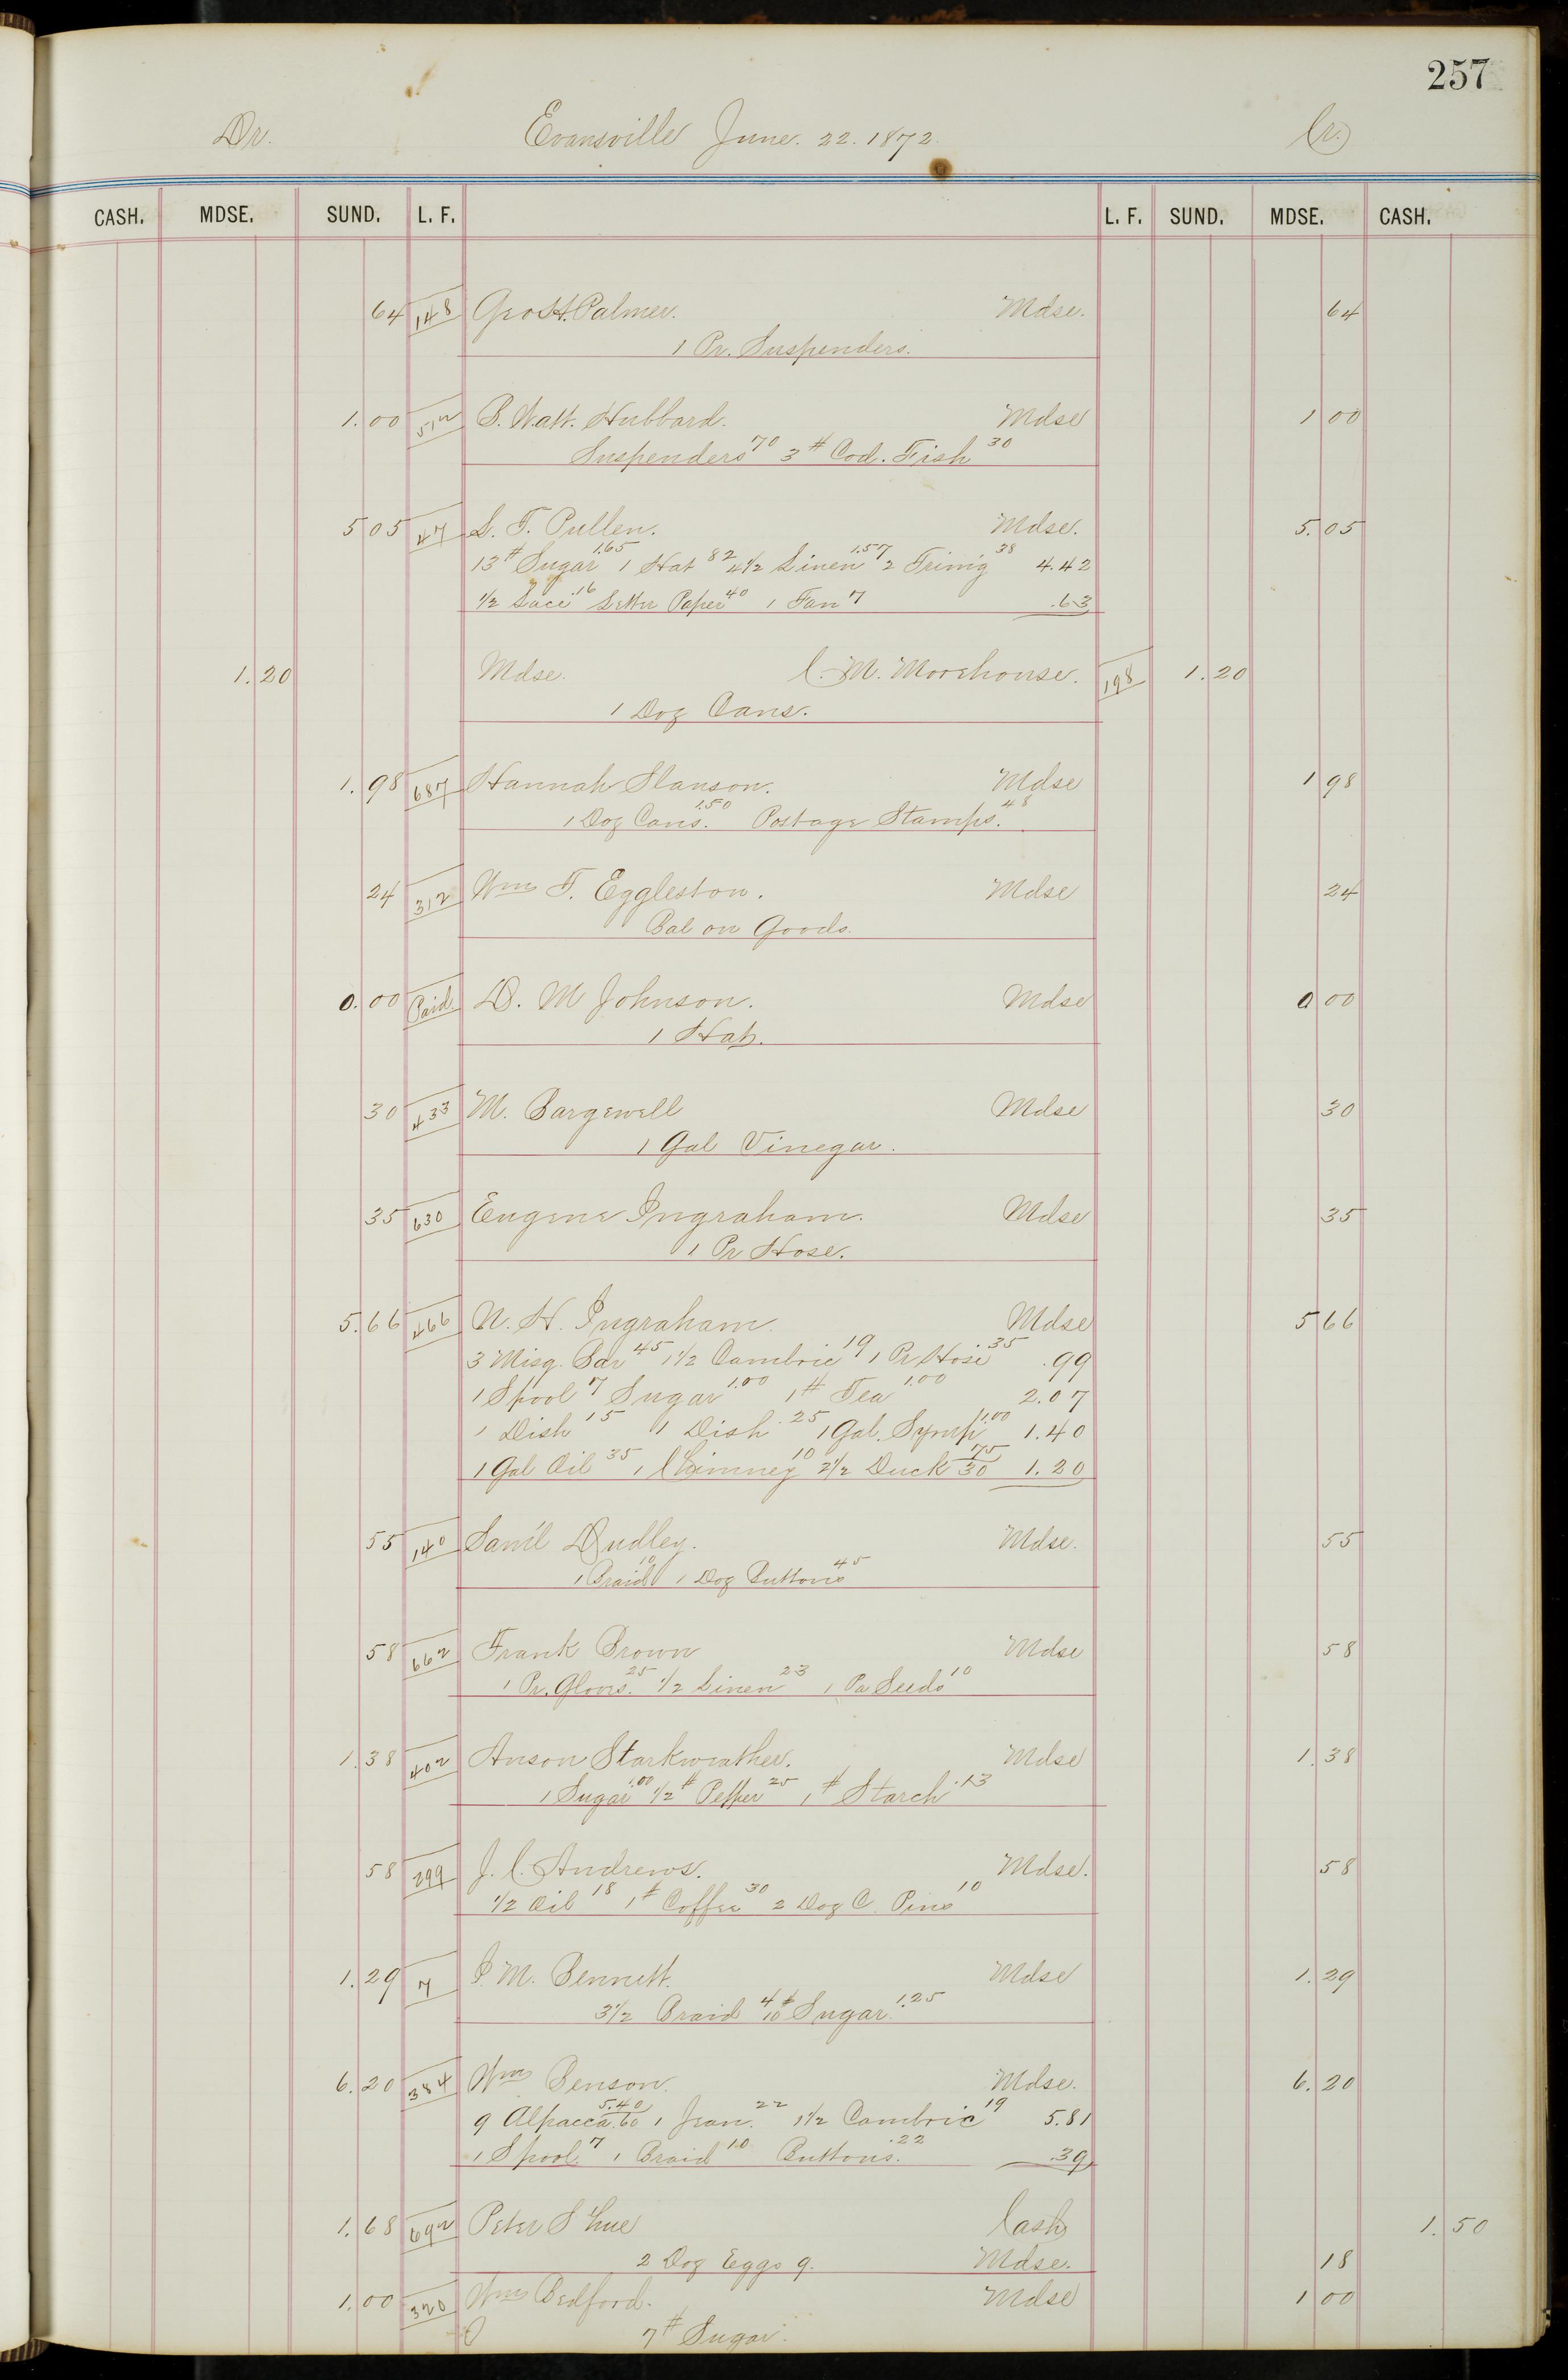 257
Dr. Evansville June. 22. 1872. Cr.
CASH. MDSE. SUND. L. F. L. F. SUND. MDSE. CASH.
64 148 Geo H. Palmer. Mdse. 64
1 Pr. Suspenders.
1.00 512 B. Watt. Hubbard. Mdse 1 00
Suspenders 70 3 # Cod. Fish 30
5 05 47 L. T. Pullen. Mdse. 5.05
13 # Sugar 1.65 1 Hat 82 4 1/2 Linen 1.57 2 Trimg 38 4.42
1/2 Lace .16 Letter Paper 40 1 Fan 7 .63
1.20 Mdse. C. M. Morehouse. 198 1.20
1 Doz Cans.
1.98 687 Hannah Slanson. Mdse 1 98
1 Doz Cans. 1.50 Postage Stamps. 48
24 312 Wm T. Eggleston. Mdse 24
Bal on Goods.
0.00 Paid D. M Johnson. Mdse 0 00
1 Hat.
30 433 M. Bargewell Mdse 30
1 Gal Vinegar.
35 630 Eugene Ingraham. Mdse 35
1 Pr Hose.
5.66 466 N. H. Ingraham. Mdse 5 66
3 Misq. Bar 45 1 1/2 Cambric 19 1 Pr Hose 35 .99
1 Spool 7 Sugar 1.00 1 # Tea 1.00 2.07
1 Dish 15 1 Dish .25 1 Gal. Syrup 1.00 1.40
1 Gal Oil 35 1 Chimney 10 2 1/2 Duck 75/30 1.20
55 140 Sam'l Dudley. Mdse. 55
1 Braid 10 1 Doz Buttons 45
58 662 Frank Brown Mdse 58
1 Pr. Gloves. 25 1/2 Linen 23 1 Pa Seeds 10
1.38 402 Anson Starkweather. Mdse 1.38
1 Sugar 1.00 1/2 # Pepper 25 1 # Starch .13
58 299 J. C. Andrews. Mdse. 58
1/2 Oil 18 1 # Coffee 30 2 Doz C. Pins 10
1.29 7 I. M. Bennett. Mdse 1.29
3 1/2 Braid 4 10 # Sugar 1.25
6.20 384 Wm Benson. Mdse. 6.20
9 Alpacca 5.40/.60 1 Jean. 22 1 1/2 Cambric 19 5.81
1 Spool. 7 1 Braid 10 Buttons. .22 .39
1.68 692 Peter Shue Cash 1.50
2 Doz Eggs 9. Mdse. 18
1.00 320 Wm Bedford. Mdse 1 00
7 # Sugar.